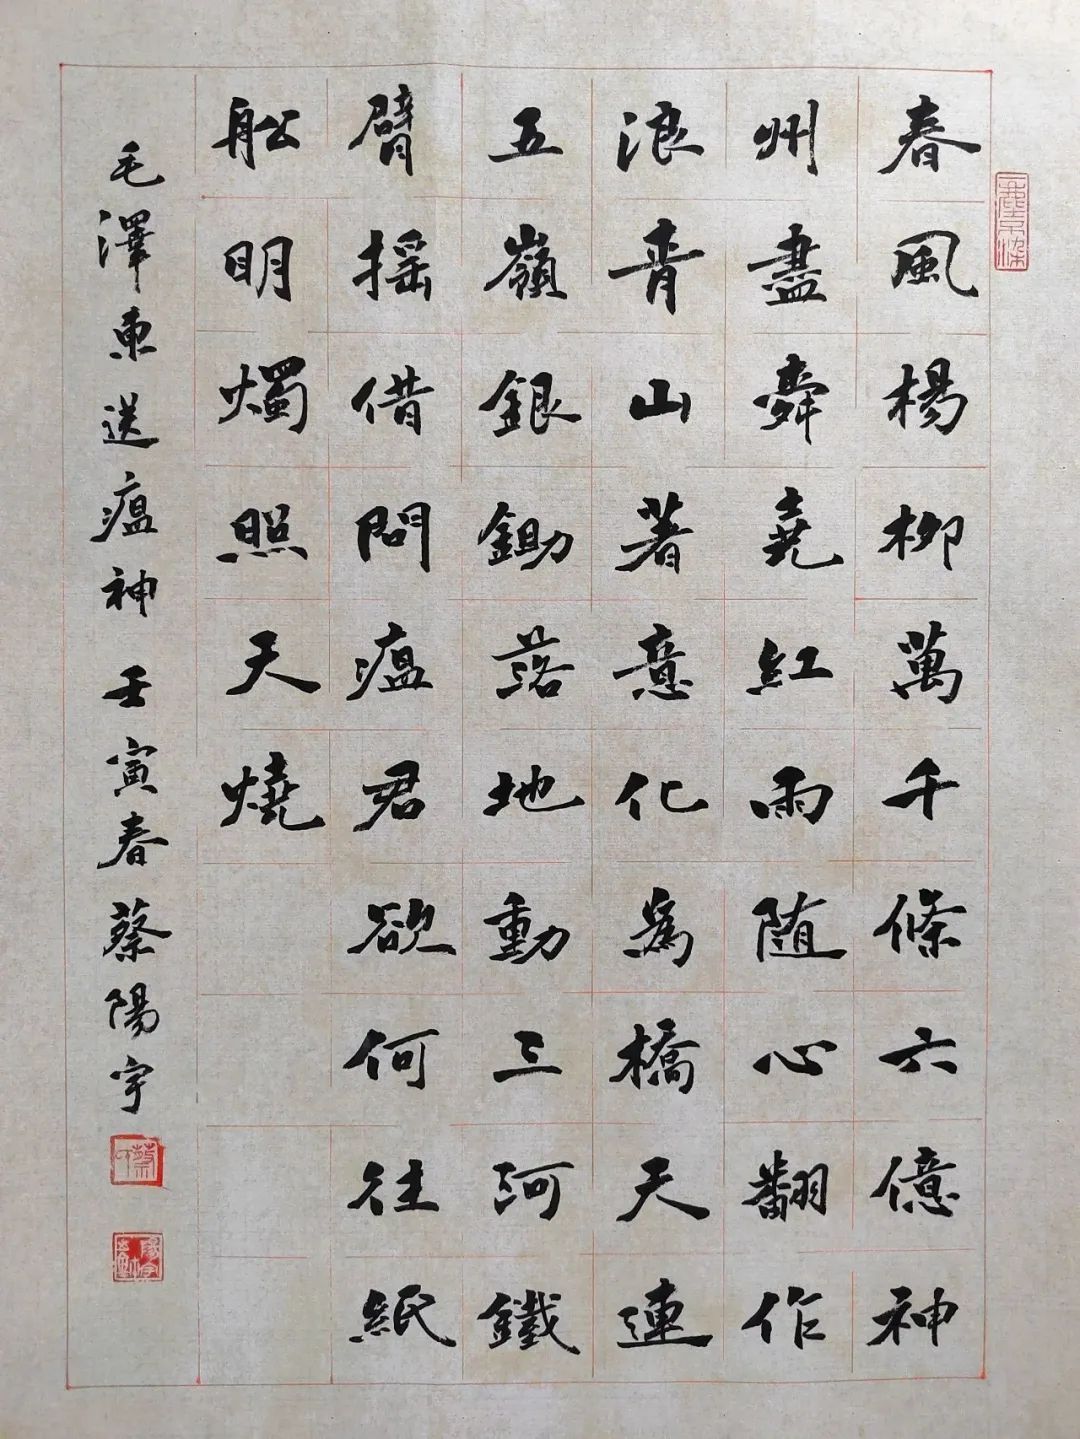 春風楊柳萬千條六億神
州盡舜堯紅雨随心翻作
浪青山著意化為橋天連
五嶺銀鋤落地動三河鐵
臂揺借問瘟君欲何往紙
舩明燭照天燒
毛澤東送瘟神 壬寅春蔡陽宇